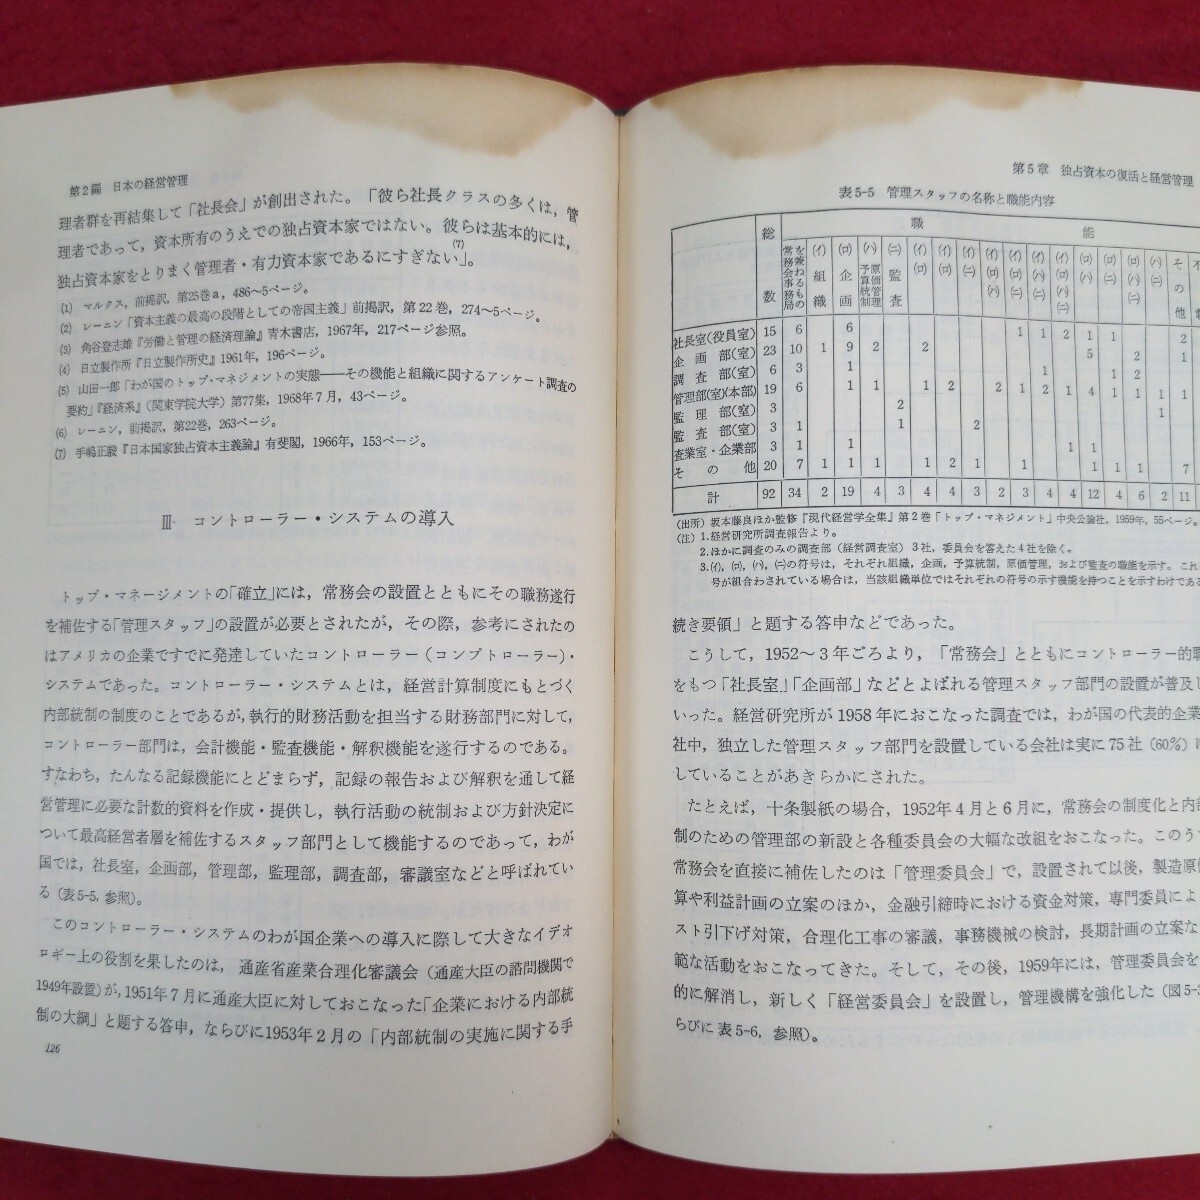 第2篇　日本の経営管理
理者群を再結集して「社長会」が創出された。「彼ら社長クラスの多くは，管
理者であって，資本所有のうえでの独占資本家ではない。彼らは基本的には，
独占資本家をとりまく管理者・有力資本家であるにすぎない」。(7)
(1)　マルクス，前掲訳，第25巻a，486〜5ページ。
(2)　レーニン「資本主義の最高の段階としての帝国主義」前掲訳，第22巻，274〜5ページ。
(3)　角谷登志雄『労働と管理の経済理論』青木書店，1967年，217ページ参照。
(4)　日立製作所『日立製作所史』1961年，196ページ。
(5)　山田一郎「わが国のトップ・マネジメントの実態――その機能と組織に関するアンケート調査の
要約」『経済系』(関東学院大学)第77集，1968年7月，43ページ。
(6)　レーニン，前掲訳，第22巻，263ページ。
(7)　手嶋正毅『日本国家独占資本主義論』有斐閣，1966年，153ページ。
Ⅲ　コントローラー・システムの導入
トップ・マネージメントの「確立」には，常務会の設置とともにその職務遂行
を補佐する「管理スタッフ」の設置が必要とされたが，その際，参考にされたの
はアメリカの企業ですでに発達していたコントローラー(コンプトローラー)・
システムであった。コントローラー・システムとは，経営計算制度にもとづく
内部統制の制度のことであるが，執行的財務活動を担当する財務部門に対して，
コントローラー部門は，会計機能・監査機能・解釈機能を遂行するのである。
すなわち，たんなる記録機能にとどまらず，記録の報告および解釈を通して経
営管理に必要な計数的資料を作成・提供し，執行活動の統制および方針決定に
ついて最高経営者層を補佐するスタッフ部門として機能するのであって，わが
国では，社長室，企画部，管理部，監理部，調査部，審議室などと呼ばれてい
る(表5-5，参照)。
このコントローラー・システムのわが国企業への導入に際して大きなイデオ
ロギー上の役割を果したのは，通産省産業合理化審議会(通産大臣の諮問機関で
1949年設置)が，1951年7月に通産大臣に対しておこなった「企業における内部統
制の大綱」と題する答申，ならびに1953年2月の「内部統制の実施に関する手
126
第5章　独占資本の復活と経営管理
表5-5　管理スタッフの名称と職能内容
総数　職能
常務会事務局を兼ねるもの　(イ)組織　(ロ)企画　(ハ)予算統制原価管理　(ニ)監査　(イ)(ロ)　(イ)(ハ)　(イ)(ニ)　(イ)(ロ)(ハ)　(イ)(ロ)(ニ)　(イ)(ロ)(ハ)(ニ)　(ロ)(ハ)　(ロ)(ニ)　(ロ)(ハ)(ニ)　(ハ)(ニ)　その他
社長室(役員室)　15　6　6　1　1　2　1　1　2
企画部(室)　23　10　1　9　2　2　5　2　1
調査部(室)　6　3　1　1　1　2
管理部(室)(本部)　19　6　1　1　1　2　2　1　2　1　4　1　1　1　1
監理部(室)　3　2　1
監査部(室)　3　1　1　2
査業室・企業部　3　1　1　1　1
その他　20　7　1　1　1　1　2　1　1　1　1　1　7
計　92　34　2　19　4　3　4　4　3　2　3　4　4　12　4　6　2　11
(出所)　坂本藤良ほか監修『現代経営学全集』第2巻「トップ・マネジメント」中央公論社，1959年，55ページ。
(注)　1.経営研究所調査報告より。
2.ほかに調査のみの調査部(経営調査室)3社，委員会を答えた4社を除く。
3.(イ)，(ロ)，(ハ)，(ニ)の符号は，それぞれ組織，企画，予算統制，原価管理，および監査の職能を示す。これ
号が組合わされている場合は，当該組織単位ではそれぞれの符号の示す機能を持つことを示すわけである
続き要領」と題する答申などであった。
こうして，1952〜3年ごろより，「常務会」とともにコントローラー的職
をもつ「社長室」「企画部」などとよばれる管理スタッフ部門の設置が普及し
いった。経営研究所が1958年におこなった調査では，わが国の代表的企業
社中，独立した管理スタッフ部門を設置している会社は実に75社(60%)に
していることがあきらかにされた。
たとえば，十条製紙の場合，1952年4月と6月に，常務会の制度化と内部
制のための管理部の新設と各種委員会の大幅な改組をおこなった。このう
常務会を直接に補佐したのは「管理委員会」で，設置されて以後，製造原価
算や利益計画の立案のほか，金融引締時における資金対策，専門委員によ
スト引下げ対策，合理化工事の審議，事務機械の検討，長期計画の立案な
範な活動をおこなってきた。そして，その後，1959年には，管理委員会を
的に解消し，新しく「経営委員会」を設置し，管理機構を強化した(図5-3
らびに表5-6，参照)。